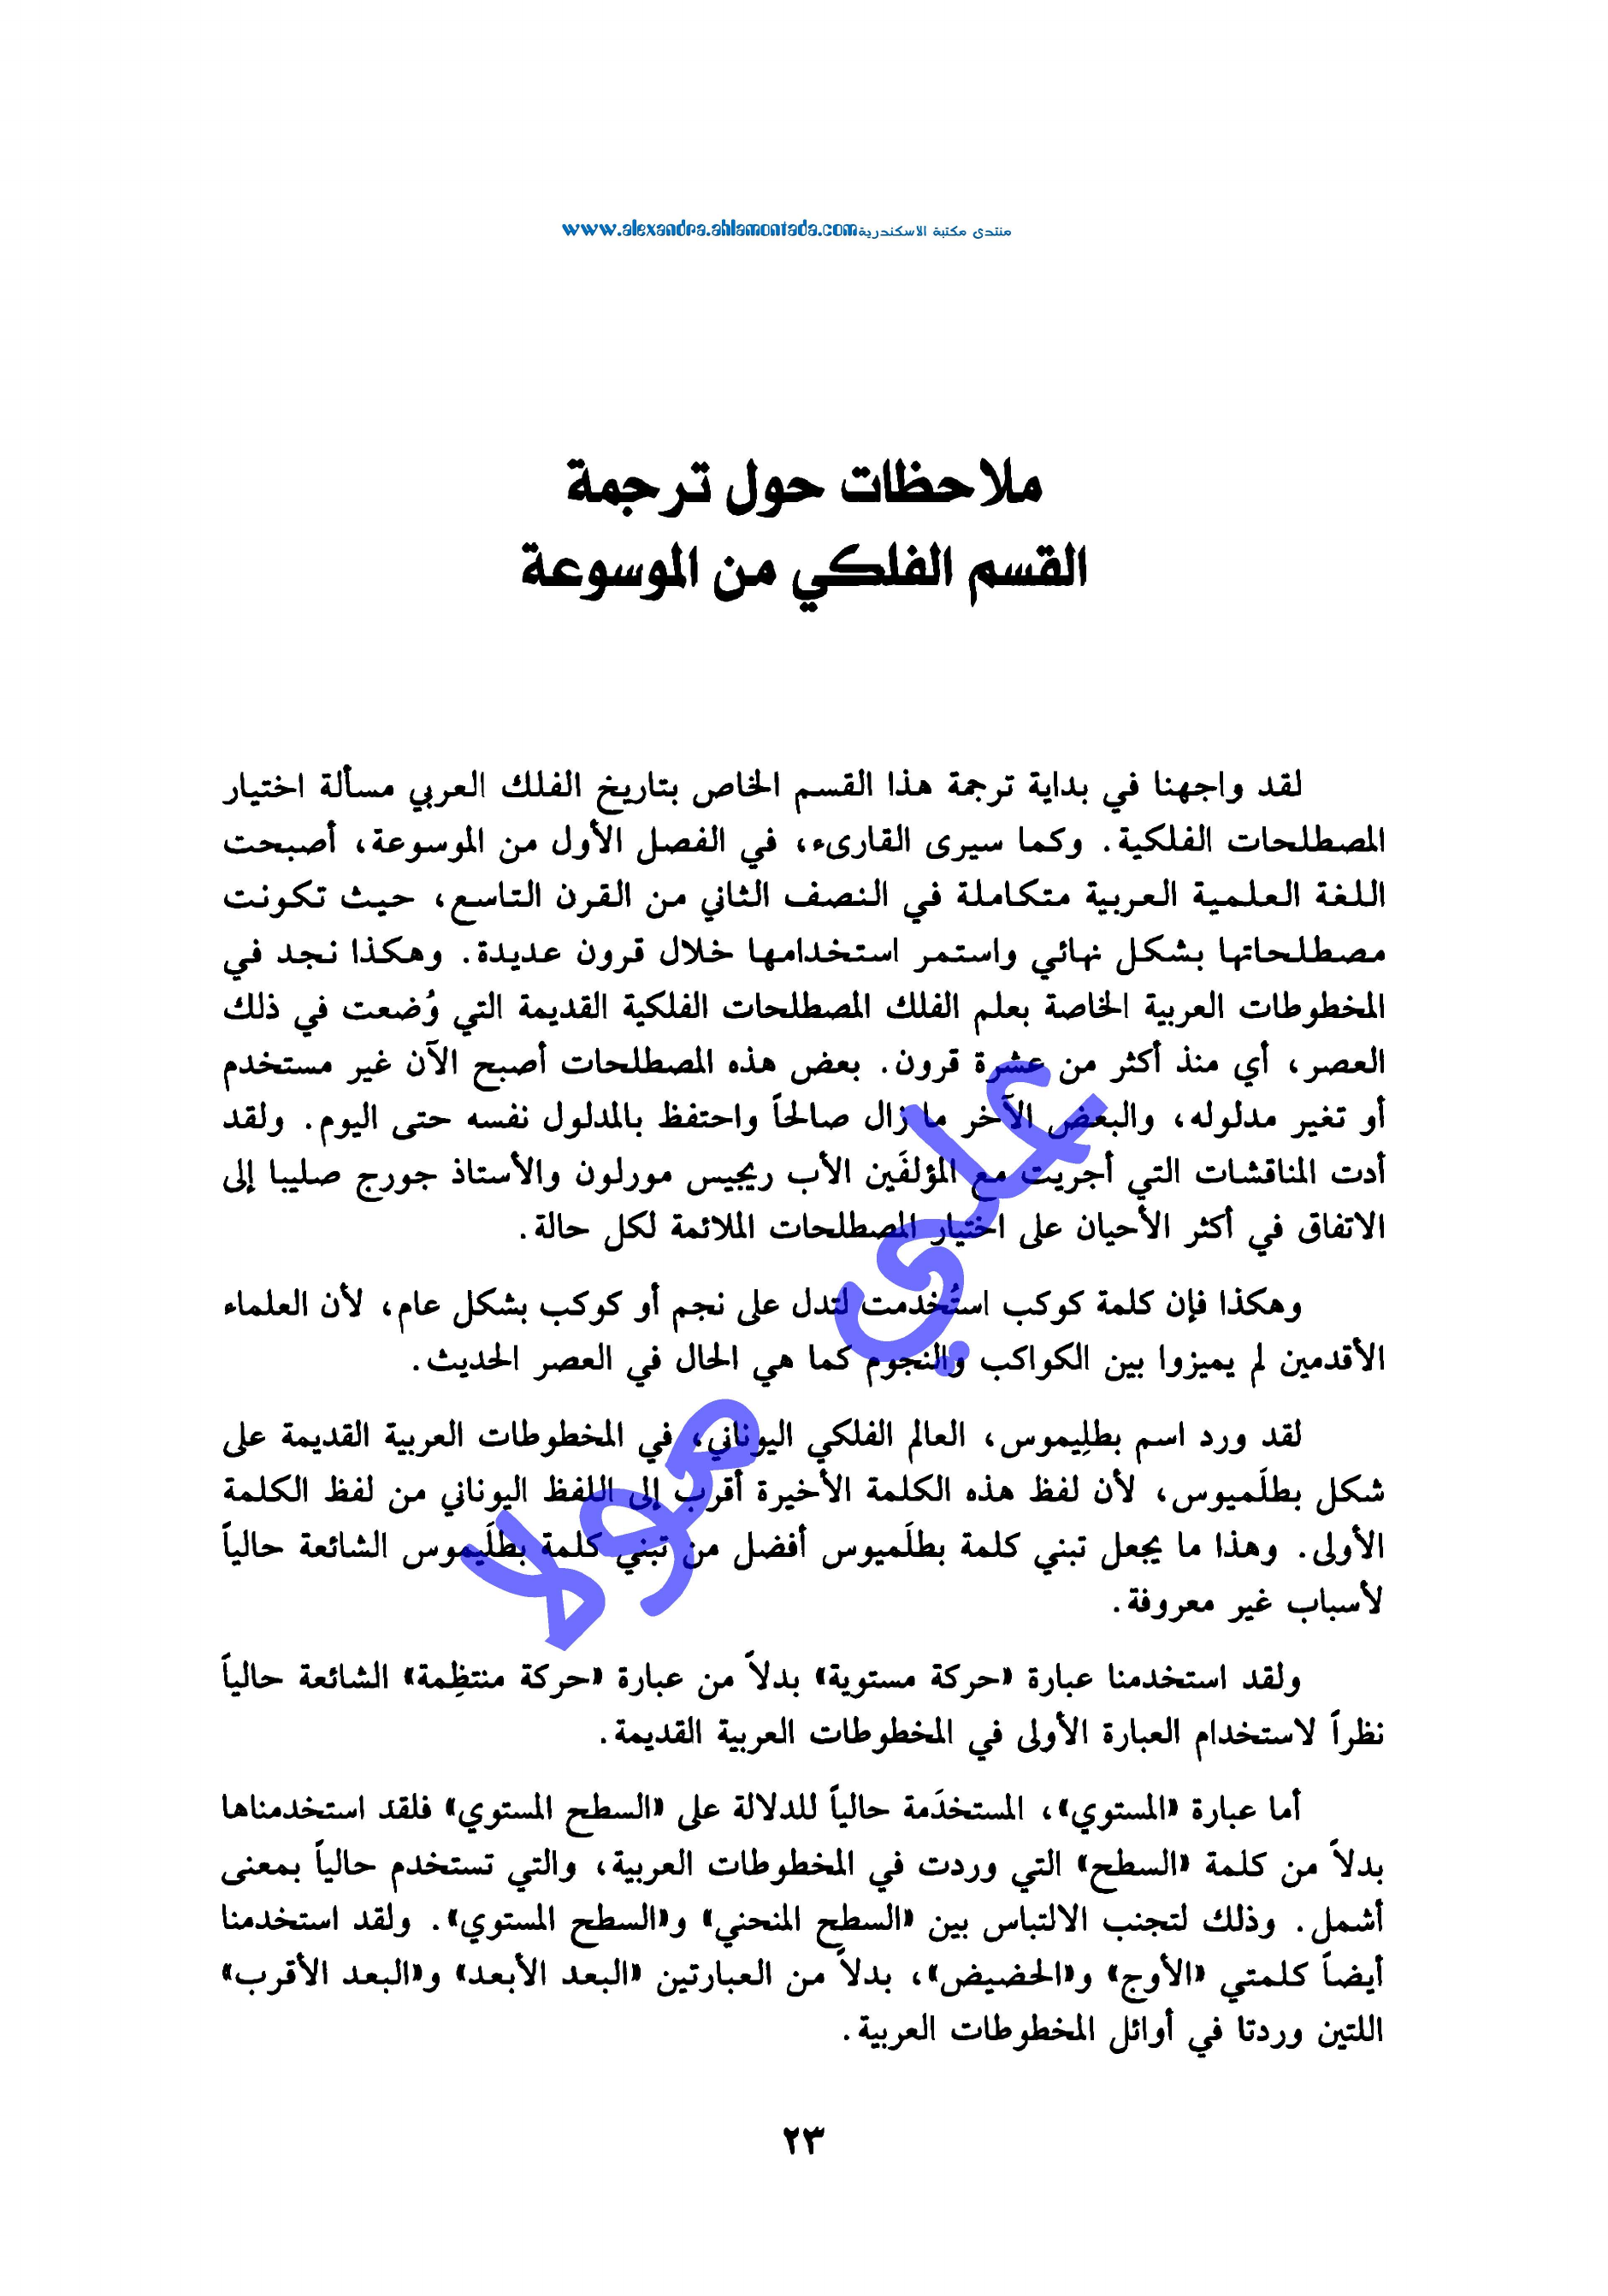 منتدى مكتبة الاسكندرية www.alexandra.ahlamontada.com
ملاحظات حول ترجمة
القسم الفلكي من الموسوعة
لقد واجهنا في بداية ترجمة هذا القسم الخاص بتاريخ الفلك العربي مسألة اختيار
المصطلحات الفلكية. وكما سيرى القارىء، في الفصل الأول من الموسوعة، أصبحت
اللغة العلمية العربية متكاملة في النصف الثاني من القرن التاسع، حيث تكونت
مصطلحاتها بشكل نهائي واستمر استخدامها خلال قرون عديدة. وهكذا نجد في
المخطوطات العربية الخاصة بعلم الفلك المصطلحات الفلكية القديمة التي وُضعت في ذلك
العصر، أي منذ أكثر من عشرة قرون. بعض هذه المصطلحات أصبح الآن غير مستخدم
أو تغير مدلوله، والبعض الآخر ما زال صالحاً واحتفظ بالمدلول نفسه حتى اليوم. ولقد
أدت المناقشات التي أجريت مع المؤلفَين الأب ريجيس مورلون والأستاذ جورج صليبا إلى
الاتفاق في أكثر الأحيان على اختيار المصطلحات الملائمة لكل حالة.
وهكذا فإن كلمة كوكب استُخدمت لتدل على نجم أو كوكب بشكل عام، لأن العلماء
الأقدمين لم يميزوا بين الكواكب والنجوم كما هي الحال في العصر الحديث.
لقد ورد اسم بطلِيموس، العالم الفلكي اليوناني، في المخطوطات العربية القديمة على
شكل بطلَميوس، لأن لفظ هذه الكلمة الأخيرة أقرب إلى اللفظ اليوناني من لفظ الكلمة
الأولى. وهذا ما يجعل تبني كلمة بطلَميوس أفضل من تبني كلمة بطلَيموس الشائعة حالياً
لأسباب غير معروفة.
ولقد استخدمنا عبارة «حركة مستوية» بدلاً من عبارة «حركة منتظِمة» الشائعة حالياً
نظراً لاستخدام العبارة الأولى في المخطوطات العربية القديمة.
أما عبارة «المستوي»، المستخدَمة حالياً للدلالة على «السطح المستوي» فلقد استخدمناها
بدلاً من كلمة «السطح» التي وردت في المخطوطات العربية، والتي تستخدم حالياً بمعنى
أشمل. وذلك لتجنب الالتباس بين «السطح المنحني» و«السطح المستوي». ولقد استخدمنا
أيضاً كلمتي «الأوج» و«الحضيض»، بدلاً من العبارتين «البعد الأبعد» و«البعد الأقرب»
اللتين وردتا في أوائل المخطوطات العربية.
٢٣
علي مولا